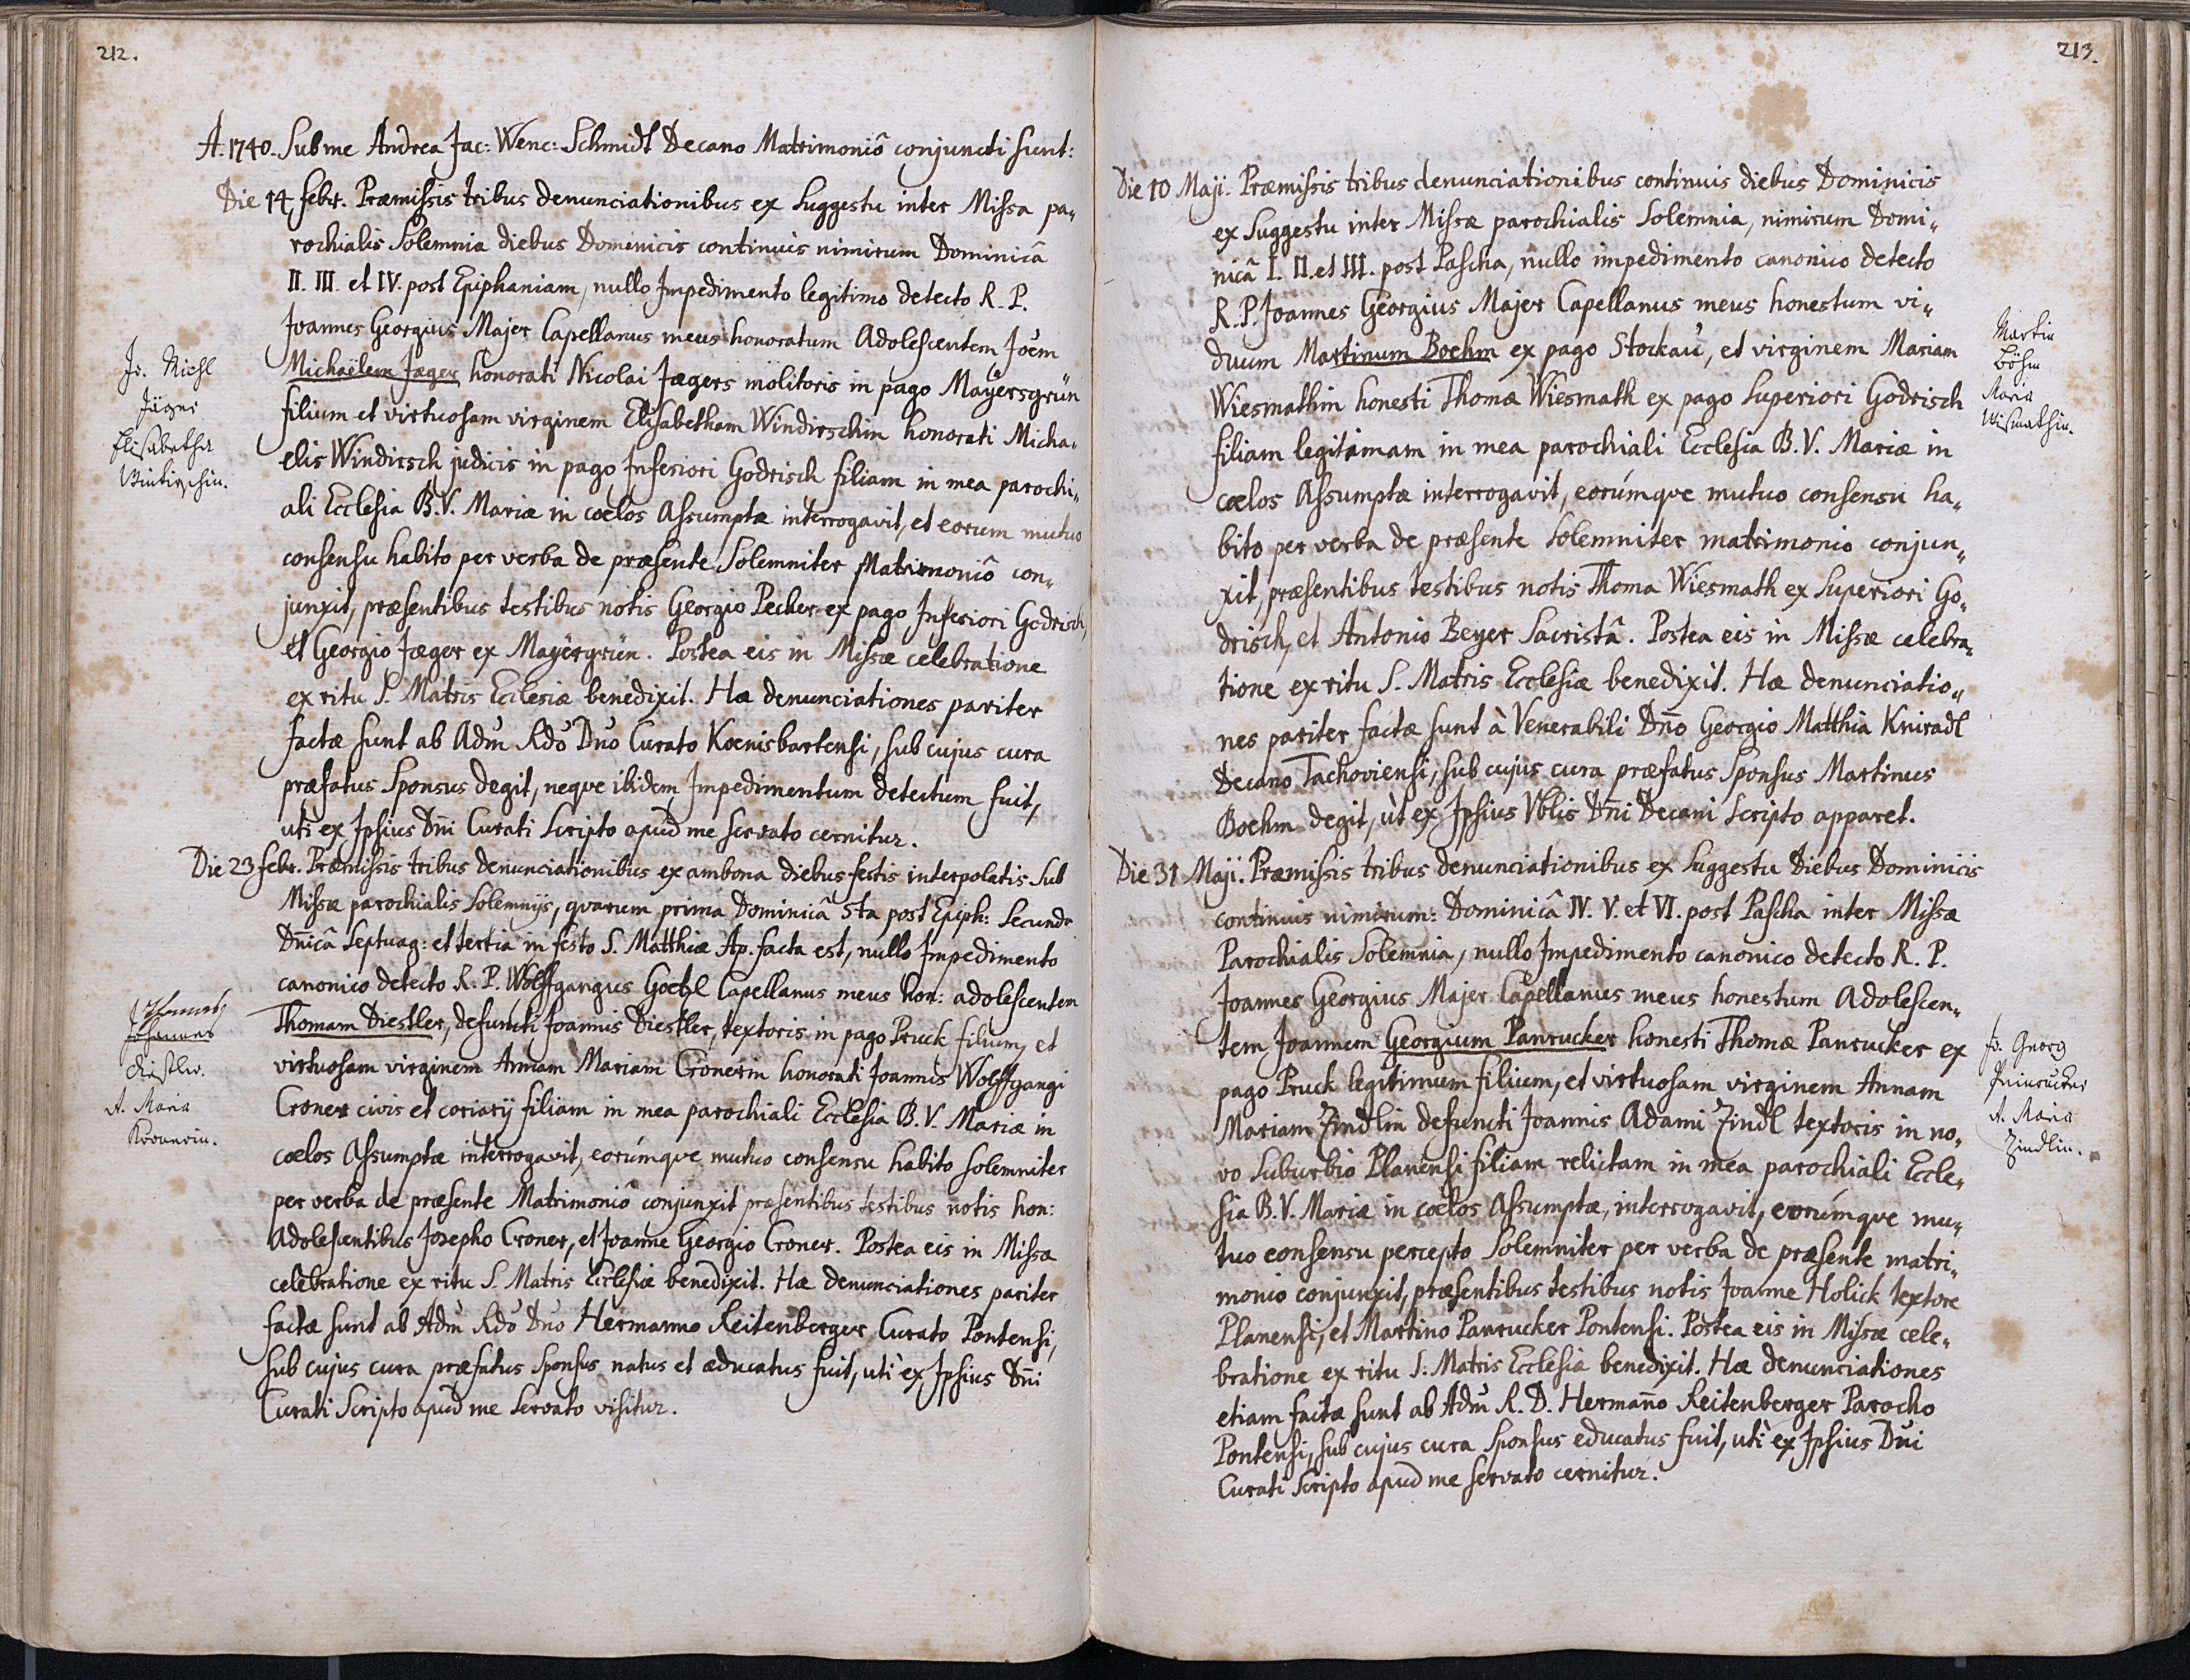 212.
A. 1740. Sub me Andrea Jac: Wenc: Schmidt Decano Matrimoniô conjuncti sunt:
Die 14 febr. Præmissis tribus denunciationibus ex suggestu inter Missa pa„
rochialis Solemnia diebus Dominicis continuis nimirum Dominicâ
II. III. et IV. post Epiphaniam, nullo Impedimento legitimo detecto R. P.
Joannes Georgius Majer Capellanus meus honoratum Adolescentem Joem
Michaëlem Jæger honorati Nicolai Jægers molitoris in pago Mayersgrün
filium et virtuosam virginem Elisabetham Windirschin honorati Micha„
elis Windirsch judicis in pago Inferiori Godrisch filiam in mea parochi„
ali Ecclesia B.V. Mariæ in cœlos Assumptæ interrogavit, et eorum mutuo
consensu habito per verba de præsente Solemniter Matrimoniô con„
junxit, præsentibus testibus notis Georgio Pecher ex pago Inferiori Godrisch,
et Georgio Jæger ex Mayergrün. Postea eis in Missæ celebratione
ex ritu S. Matris Ecclesiæ benedixit. Hæ denunciationes pariter
factæ sunt ab Adm Rdo Dno Curato Kœnisbartensi, sub cujus cura
præfatus Sponsus degit, neqve ibidem Impedimentum detectum fuit,
uti ex Ipsius Dni Curati Scripto apud me servato cernitur.
Jo. Michl
Jäger
Elisabetha
Windirschin.
Die 23 febr. Præmissis tribus denunciationibus ex ambona diebus festis interpolatis sub
Missæ parochialis Solemnijs, qvarum prima Dominicâ 5ta post Epiph: Secunda
Dnicâ Septuag: et tertia in festo S. Matthiæ Ap. facta est, nullo Impedimento
canonico detecto R. P. Wolffgangus Goehl Capellanus meus hon: adolescentem
Thomam Diestler, defuncti Joannis Diestler, textoris in pago Pruck filium, et
virtuosam virginem Annam Mariam Cronerin honorati Joannis Wolffgangi
Croner civis et coriarij filiam in mea parochiali Ecclesia B.V. Mariæ in
cœlos Assumptæ interrogavit, eorúmqve mutuo consensu habito solemniter
per verba de præsente Matrimoniô conjunxit præsentibus testibus notis hon:
Adolescentibus Josepho Croner, et Joanne Georgio Croner. Postea eis in Missa
celebratione ex ritu S. Matris Ecclesiæ benedixit. Hæ denunciationes pariter
factæ sunt ab Adm Rdo Dno Hermanno Reitenberger Curato Pontensi,
sub cujus cura præfatus Sponsus natus et æducatus fuit, uti ex Ipsius Dni
Curati Scripto apud me servato visitur.
Johannes
Diestler.
A. Maria
Kronerin.
213.
Die 10 Maji. Præmissis tribus denunciationibus continuis diebus Dominicis
ex Suggestu inter Missæ parochialis Solemnia, nimirum Domi„
nicâ I. II. et III. post Pascha, nullo impedimento canonico detecto
R. P. Joannes Georgius Majer Capellanus meus honestum vi„
duum Martinum Boehm ex pago Stockau, et virginem Mariam
Wiesmathin honesti Thomæ Wiesmath ex pago Superiori Godrisch
filiam legitimam in mea parochiali Ecclesia B.V. Mariæ in
cœlos Assumptæ interrogavit, eorúmqve mutuo consensu ha„
bito per verba de præsente solemniter matrimonio conjun„
xit, præsentibus testibus notis Thoma Wiesmath ex Superiori Go„
drisch, et Antonio Beyer Sacristâ. Postea eis in Missæ celebra„
tione ex ritu S. Matris Ecclesiæ benedixit. Hæ denunciatio„
nes pariter factæ sunt à Venerabili Dno Georgio Matthia Kniradl
Decano Tachoviensi, sub cujus cura præfatus Sponsus Martinus
Boehm degit, ùt ex Ipsius Vblis Dni Decani Scripto apparet.
Martin
Böhm
Maria
Wismathin.
Die 31 Maji. Præmissis tribus denunciationibus ex Suggestu Diebus Dominicis
continuis nimirum: Dominicâ IV. V. et VI. post Pascha inter Missæ
Parochialis Solemnia, nullo Impedimento canonico detecto R. P.
Joannes Georgius Majer Capellanus meus honestum Adolescen„
tem Joannem Georgium Panrucker honesti Thomæ Panrucker ex
pago Pruck legitimum filium, et virtuosam virginem Annam
Mariam Zindlin defuncti Joannis Adami Zindl textoris in no„
vo Suburbio Planensi filiam relictam in mea parochiali Eccle„
sia B.V. Mariæ in cœlos Assumptæ, interrogavit, eorúmqve mu„
tuo consensu percepto solemniter per verba de præsente matri„
monio conjunxit, præsentibus testibus notis Joanne Holick textore
Planensi, et Martino Panrucker Pontensi. Postea eis in Missæ cele„
bratione ex ritu S: Matris Ecclesiæ benedixit. Hæ denunciationes
etiam factæ sunt ab Adm R. D. Hermano Reitenberger Parocho
Pontensi, sub cujus cura Sponsus educatus fuit, utì ex Ipsius Dni
Curati Scripto apud me servato cernitur.
Jo. Georg
A. Maria
Zindlin.